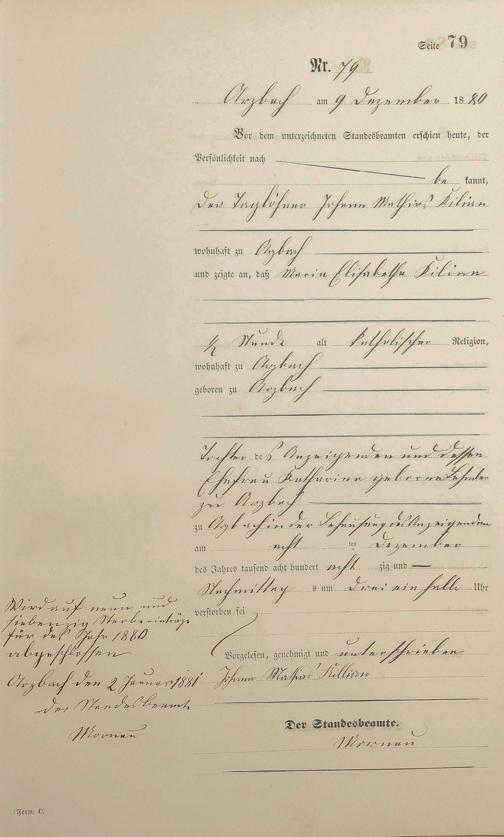 Seite 79
Nr. 79
Arzbach am 9 Dezember 1880
Vor dem unterzeichneten Standesbeamten erschien heute, der
Persönlichkeit nach
be kannt,
Der Taglöhner Johann Mathias Kilian
wohnhaft zu Arzbach
und zeigte an, daß Maria Elisabetha Kilian
½ Stunde alt katholischer Religion,
wohnhaft zu Arzbach
geboren zu Arzbach
Tochter des Anzeigenden und dessen
Ehefrau Katharina geborne
zu Arzbach
zu Arzbach in der Behausung des Anzeigenden
am acht ten Dezember
des Jahres tausend acht hundert acht zig und
Nachmittag s um drei ein halb Uhr
verstorben sei
Vorgelesen, genehmigt und unterschrieben
Johann Mathias Killian
Der Standesbeamte.
Mornau
Wird auf neun und
siebenzig Sterbeeinträge
für das Jahr 1880
abgeschlossen
Arzbach den 2 Januar 1881
Der Standesbeamte
Mornau
Form. C.